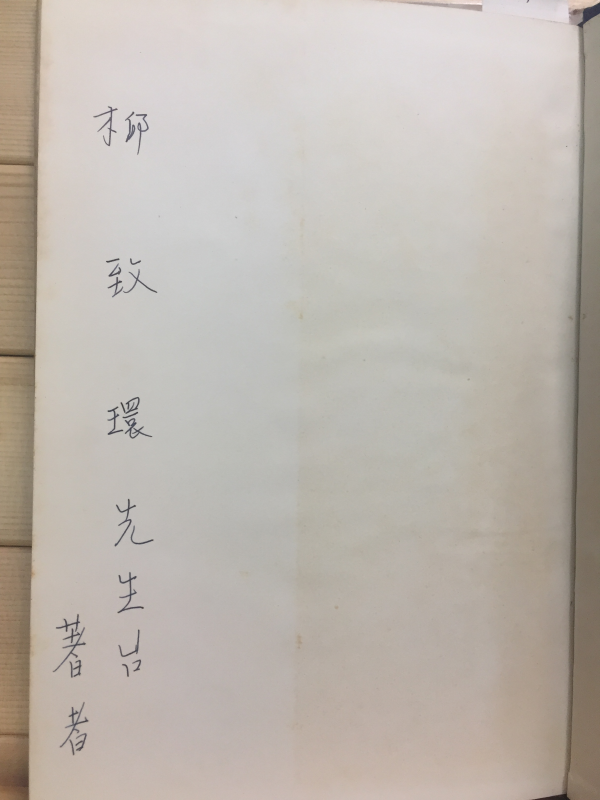 柳致環先生
著者